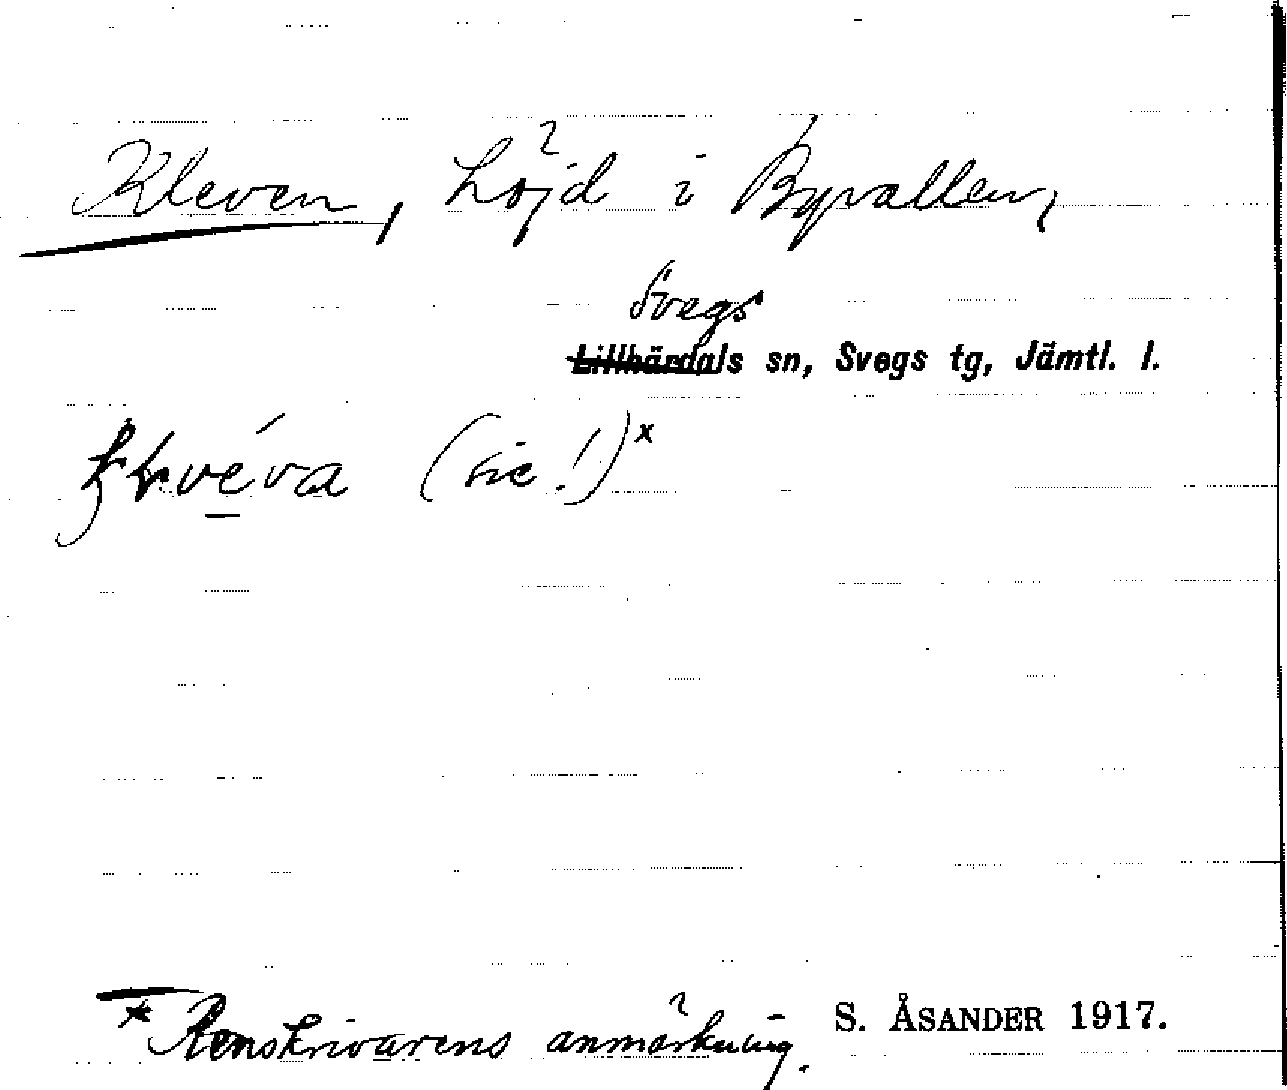 Kleven, höjd i Byvallen,
Svegs
Lillhärdals sn, Svegs tg, Jämtl. l.
(sic!)x
* Renskrivarens anmärkning.
S. ÅSANDER 1917.